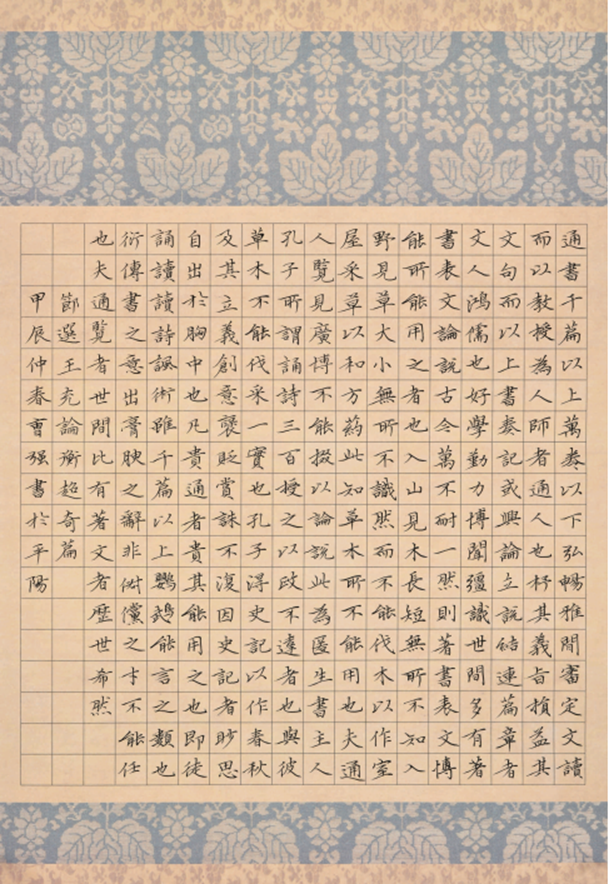 通書千篇以上萬卷以下弘暢雅閒審定文讀
而以教授為人師者通人也杼其義旨損益其
文句而以上書奏記或興論立說結連篇章者
文人鴻儒也好學勤力博聞彊識世間多有著
書表文論說古今萬不耐一然則著書表文博
能所能用之者也入山見木長短無所不知入
野見草大小無所不識然而不能伐木以作室
屋采草以和方藥此知草木所不能用也夫通
人覽見廣博不能掇以論說此為匿生書主人
孔子所謂誦詩三百授之以政不達者也與彼
草木不能伐采一實也孔子得史記以作春秋
及其立義創意褒貶賞誅不復因史記者眇思
自出於胸中也凡貴通者貴其能用之也即徒
誦讀讀詩諷術雖千篇以上鸚鵡能言之類也
衍傳書之意出膏腴之辭非俶儻之才不能任
也夫通覽者世間比有著文者歷世希然
節選王充論衡超奇篇
甲辰仲春曹强書於平陽